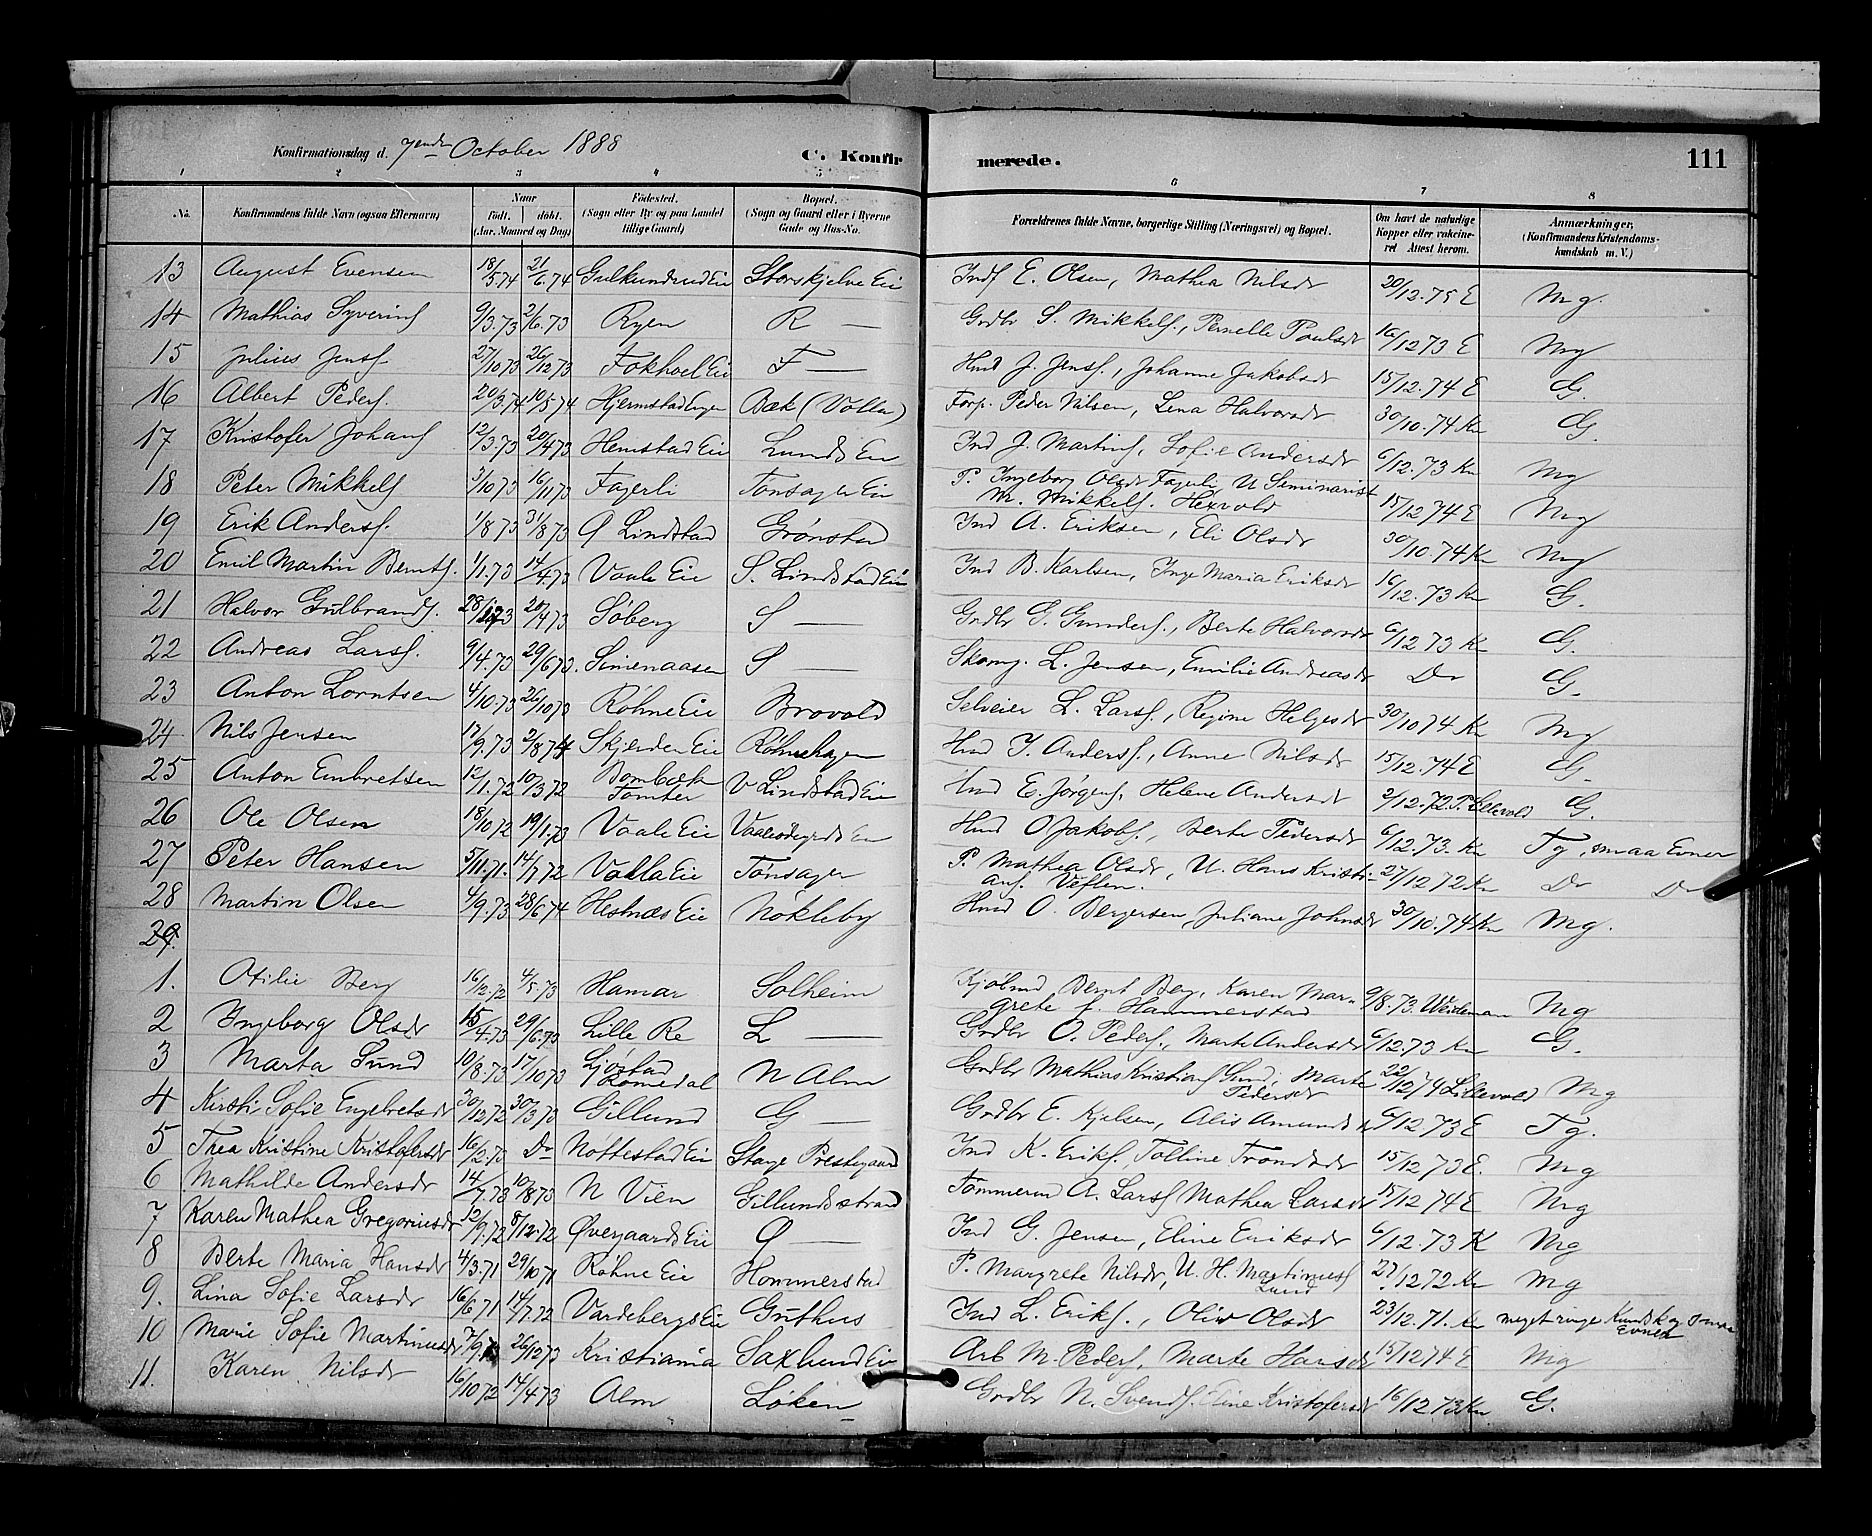 Konfirmationsdag d. 7ende October 1888 C. Konfir merede. 111
1 2 3 4 5 6 7 8
No. Konfirmandens fulde Navn (ogsaa Efternavn) Naar födt. döbt. (Aar. Maaned og Dag) Födested. (Sogn eller By og paa Landet tillige Gaard) Bopæl. (Sogn og Gaard eller i Byerne Gade og Hus-No. Forældrenes fulde Navne, borgerlige Stilling (Næringsvei) og Bopæl. Om havt de naturlige Kopper eller vakcineret Attest herom. Anmærkninger. (Konfirmandens Kristendomskundskab m. V.)
13 August Evensen 18/5.74 21/6.74 Gulkundrud Eie Storskjelve Eie Indf E. Olsen, Mathea Nilsdr 20/12.75 E Mg.
14 Mathias Syverins 9/3.73 2/6.73 Ryen R — Grdbr S. Mikkels., Pernelle Paulsdr 16/12 73 E Mg
15 Julius Jens. 27/10.73 26/12 73 Fokhoel Eie F — Hmd J. Jens., Johanne Jakobsdr 15/12.74 E G.
16 Albert Peders. 20/3.74 10/5 74 Hjermstad Enger Bæk (Volla) Forp. Peder Nilsen, Lena Halvorsdr 30/10.74 Kn G.
17 Kristofer Johans 12/3.73 20/4 73 Hemstad Eie Lunds Eie Ind J. Martins, Sofie Andersdr 6/12.73 Kn Mg
18 Peter Mikkels 3/10 73 16/11 73 Fagerli Tønsager Eie P. Ingeborg Olsdr Fagerli U Seminarist M. Mikkels. Hexvold 15/12 74 E Mg
19 Erik Anders. 1/8 73 31/8 73 Ø Lindstad Grønstad Ind A. Eriksen, Eli Olsdr 30/10.74 Kn Mg
20 Emil Martin Bernts. 1/1.73 14/4.73 Vaale Eie S. Lindstad Eie Ind B. Karlsen, Inge Maria Eriksdr 16/12.73 Kn G.
21 Halvor Gulbrands. 28/1273 20/4 73 Søberg S — Grdbr G. Gunders., Berte Halvorsdr 6/12 73 Kn G.
22 Andreas Lars. 9/4.73 29/6 73. Simenaasen S — Skomg. L. Jensen, Emilie Andreasdr Do G.
23 Anton Lorntsen 4/10.73 26/10 73 Røhne Eie Brovold Selveier L. Lars., Regine Helgesdr 30/10 74 Kn Mg
24 Nils Jensen 17/9.73 2/8 74 Skjerden Eie Røhnehagen Hmd J. Anders., Anne Nilsdr 15/12.74 E G.
25 Anton Embretsen 12/1.72 10/3 72 Bombæk Tomter V Lindstad Eie Hmd E. Jørgens, Helene Andersdr 2/12.72. P. Lillevold G.
26 Ole Olsen 18/10.72 19/1.73 Vaale Eie Vaaleødegrds Eie Hmd O Jakobs., Berte Pedersdr 6/12.73. Kn Tg, smaa Evner
27 Peter Hansen 5/11.71. 14/7.72 Valla Eie Tønsager P. Mathea Olsdr, U. Hans Kristians. Veflen. 27/12 72 Kn Do Do
28 Martin Olsen 4/9.73 28/6.74 Hestnæs Eie Nøkleby Hmd O. Bergersen, Juliane Johnsdr 30/10.74 Kn Mg.
29.
1. Otilie Berg 16/12.72 4/5.73 Hamar Solheim Kjøbmd Bernt Berg, Karen Margrete f. Hammerstad 9/8.73. Weideman Mg
2 Ingeborg Olsdr 15/4.73 29/6.73 Lille Re L — Grdbr O. Peders., Marte Andersdr 6/12.73 Kn G.
3 Marta Sund 10/8.73 17/10 73 Ljøstad Romedal N Alm Grdbr Mathias Kristians Sund, Marte Pedersdr 22/12 74 Lillevold Mg
4 Kirsti Sofie Engebretsdr 30/12 72 30/3 73 Gillund G — Grdbr E. Kjelsen, Alis Amundsdr 6/12 73 E Tg.
5 Thea Kristine Kristofersdr 16/2.73 Do Nøttestad Eie Stange Prestegaard Ind K. Eriks., Tolline Trondsdr 15/12 73 E. Mg
6 Mathilde Andersdr 14/7.73 10/8 73 N Vien Gillundstrand Tømmermd A. Lars Mathea Larsdr 15/12 74 E Mg
7 Karen Mathea Gregoriusdr 12/9.72 8/12.72 Øvergaards Eie Ø — Ind G. Jensen, Eline Eriksdr 6/12.73 K Mg
8 Berte Maria Hansdr 4/3.71 29/10 71 Røhne Eie Hommerstad P. Margrete Nilsdr, U. H. Martinius Lund 27/12 72 Kn Mg
9. Lina Sofie Larsdr 16/6 71 14/7.72 Vardebergs Eie Guthus Ind L. Eriks., Oliv Olsdr 23/12.71. Kn meget ringe Kundsk og smaa Evner
10 Marie Sofie Martinusdr 7/9.73 26/12 73 Kristiania Saxlund Eie Arb M. Peders, Marte Hansdr 15/12 74 E Mg
11. Karen Nilsdr 16/10 72 14/4 73 Alm Løken Grdbr N. Svends. Eline Kristofersdr 16/12 73 Kn G.